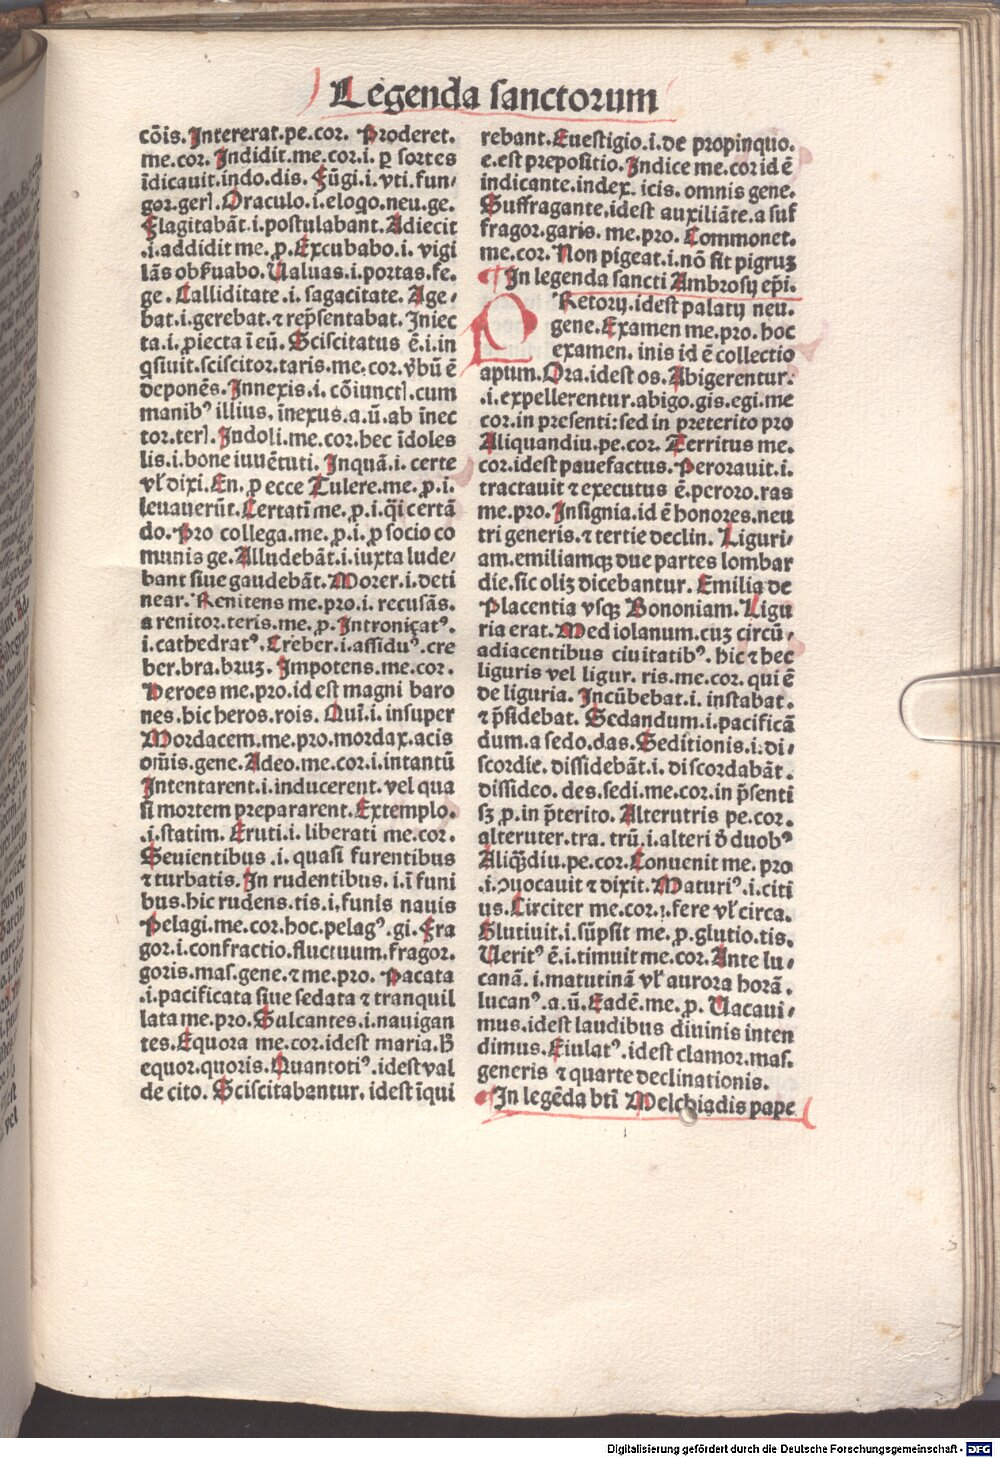 Legenda sanctorum
cõis. Intererat.pe.cor. Proderet.
me.cor. Indidit.me.cor.i. ꝑ sortes
īdicauit.indo.dis. Fũgi.i.vti.fun-
gor.geris. Oraculo.i.eloqo.neu.ge.
Flagitabāt.i.postulabant. Adiecit
.i.addidit me.p. Excubabo.i. vigi
lās obẜuabo. Ualuas.i.portas.fe.
ge. Calliditate.i. sagacitate. Age-
bat.i.gerebat.⁊ rep̃sentabat. Iniec
ta.i. ꝓiecta ī eũ. Sciscitatus ẽ.i.in
q̃siuit.sciscitor.taris.me.cor. v̓bũ ẽ
deponẽs. Innexis.i. cõiunctis.cum
manibꝰ illius. īnexus.a.ũ.ab īnec
tor.teris. Indoli.me.cor.hec īdoles
lis.i.bone iuuẽtuti. Inquã.i. certe
vł dixi. En. p ecce Tulere.me. p.i.
leuauerũt. Certatī me. p.i.q̃i certã
do. Pro collega.me.p.i. ꝓ socio co
munis ge. Alludebãt.i.iuxta lude-
bant siue gaudebãt. Morer.i.deti
near. Renitens me.pro.i. recusãs.
a renitor.teris.me. p. Intronizatꝰ.
i.cathedratꝰ. Creber.i.assiduꝰ.cre
ber.bra.bruꝫ. Impotens.me.cor.
Heroes me.pro.id est magni baro
nes.hic heros.rois. Quī.i. insuper
Mordacem.me.pro.mordax.acis
om̃is.gene. Adeo.me.cor.i.intantũ
Intentarent.i.inducerent. vel qua
si mortem prepararent. Extemplo.
.i.statim. Eruti.i. liberati me.cor.
Seuientibus .i. quasi furentibus
⁊ turbatis. In rudentibus. i.ī funi
bus.hic rudens.tis.i.funis nauis
Pelagi.me.cor.hoc.pelagꝰ.gi. Fra
gor.i.confractio.fluctuum.fragor.
goris.mas.gene.⁊ me.pro. Pacata
.i.pacificata siue sedata ⁊ tranquil
lata me.pro. Sulcantes.i.nauigan
tes. Equora me.cor.idest maria. H̄
equor.quoris. Quantotiꝰ.idest val
de cito. Sciscitabantur. idest īqui
rebant. Euestigio.i.de propinquo.
e.est prepositio. Indice me.cor id ẽ
indicante.index. icis. omnis gene.
Suffragante.idest auxiliãte.a suf
fragor.garis. me.pro. Commonet.
me.cor. Non pigeat.i.nõ sit pigruꝫ
¶ In legenda sancti Ambrosij ep̃i.
PRetorij.idest palatij neu.
gene. Examen me.pro. hoc
examen. inis id ẽ collectio
apum. Ora.idest os. Abigerentur.
.i.expellerentur.abigo.gis.egi.me
cor.in presenti:sed in preterito pro
Aliquandiu.pe.cor. Territus me.
cor.idest pauefactus. Perorauit.i.
tractauit ⁊ executus ẽ.peroro.ras
me.pro. Insignia.id ẽ honores.neu
tri generis.⁊ tertie declin. Liguri-
am.emiliamqꝫ due partes lombar
die.sic oliꝫ dicebantur. Emilia de
Placentia vsqꝫ Bononiam. Ligu
ria erat. Mediolanum.cuꝫ circũ-
adiacentibus ciuitatibꝰ. hic ⁊ hec
liguris vel ligur. ris.me.cor. qui ẽ
de liguria. Incũbebat.i. instabat.
⁊ p̃sidebat. Sedandum.i.pacificã
dum.a sedo.das. Seditionis.i.di-
scordie. dissidebãt.i. discordabãt.
dissideo. des.sedi.me.cor.in p̃senti
sꝫ p.in p̃terito. Alterutris pe.cor.
alteruter.tra. trũ.i.alteri d̓ duobꝰ
Aliq̃diu.pe.cor. Conuenit me. pro
.i.ꝯuocauit ⁊ dixit. Maturiꝰ.i.citi
us. Circiter me.cor.i.fere vł circa.
Glutiuit.i.sũpsit me.p.glutio.tis.
Ueritꝰ ẽ.i.timuit me.cor. Ante lu-
canã.i.matutinã vł aurora horã.
lucanꝰ.a.ũ. Eadẽ.me.p. Uacaui-
mus.idest laudibus diuinis inten
dimus. Eiulatꝰ.idest clamor.mas.
generis ⁊ quarte declinationis.
¶ In legẽda bt̄i Melchiadis pape
Digitalisierung gefördert durch die Deutsche Forschungsgemeinschaft - DFG